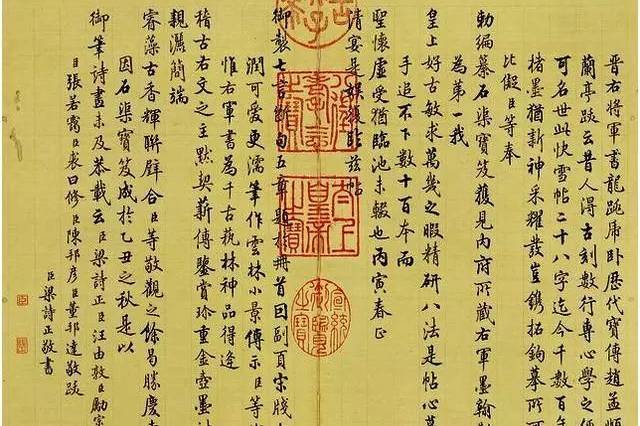 晋右將軍書龍跳虎卧歷代寶傳趙孟順
蘭亭跋云昔人得古刻數行專心學之便
可名世此快雪帖二十八字迄今千數百年
楮墨猶新神采耀發豈鐫拓鉤摹所可
比儗臣等奉
勅編纂石渠寶笈獲見內府所藏右軍墨翰
為第一我
皇上好古敏求萬幾之暇精研八法是帖心摹
手追不下數十百本而
聖懷虛受猶臨池未輟也丙寅春正
清宴是
御製七言斷句五章題於冊首回副頁宋牋
潤可愛更濡筆作雲林小景傳示臣等
惟右軍書為千古萟林神品得逢
稽古右文之主默契薪傳鑒賞珍重金壺墨
親灑簡端
睿藻古香輝聯璧合臣等敬觀之餘曷勝慶
因石渠寶笈成於乙丑之秋是以
御筆詩畫未及恭載云臣梁詩正臣汪由敦臣勵宗
臣張若靄臣裘曰修臣陳邦彥臣董邦達敬跋
臣梁詩正敬書
太上皇帝之寶